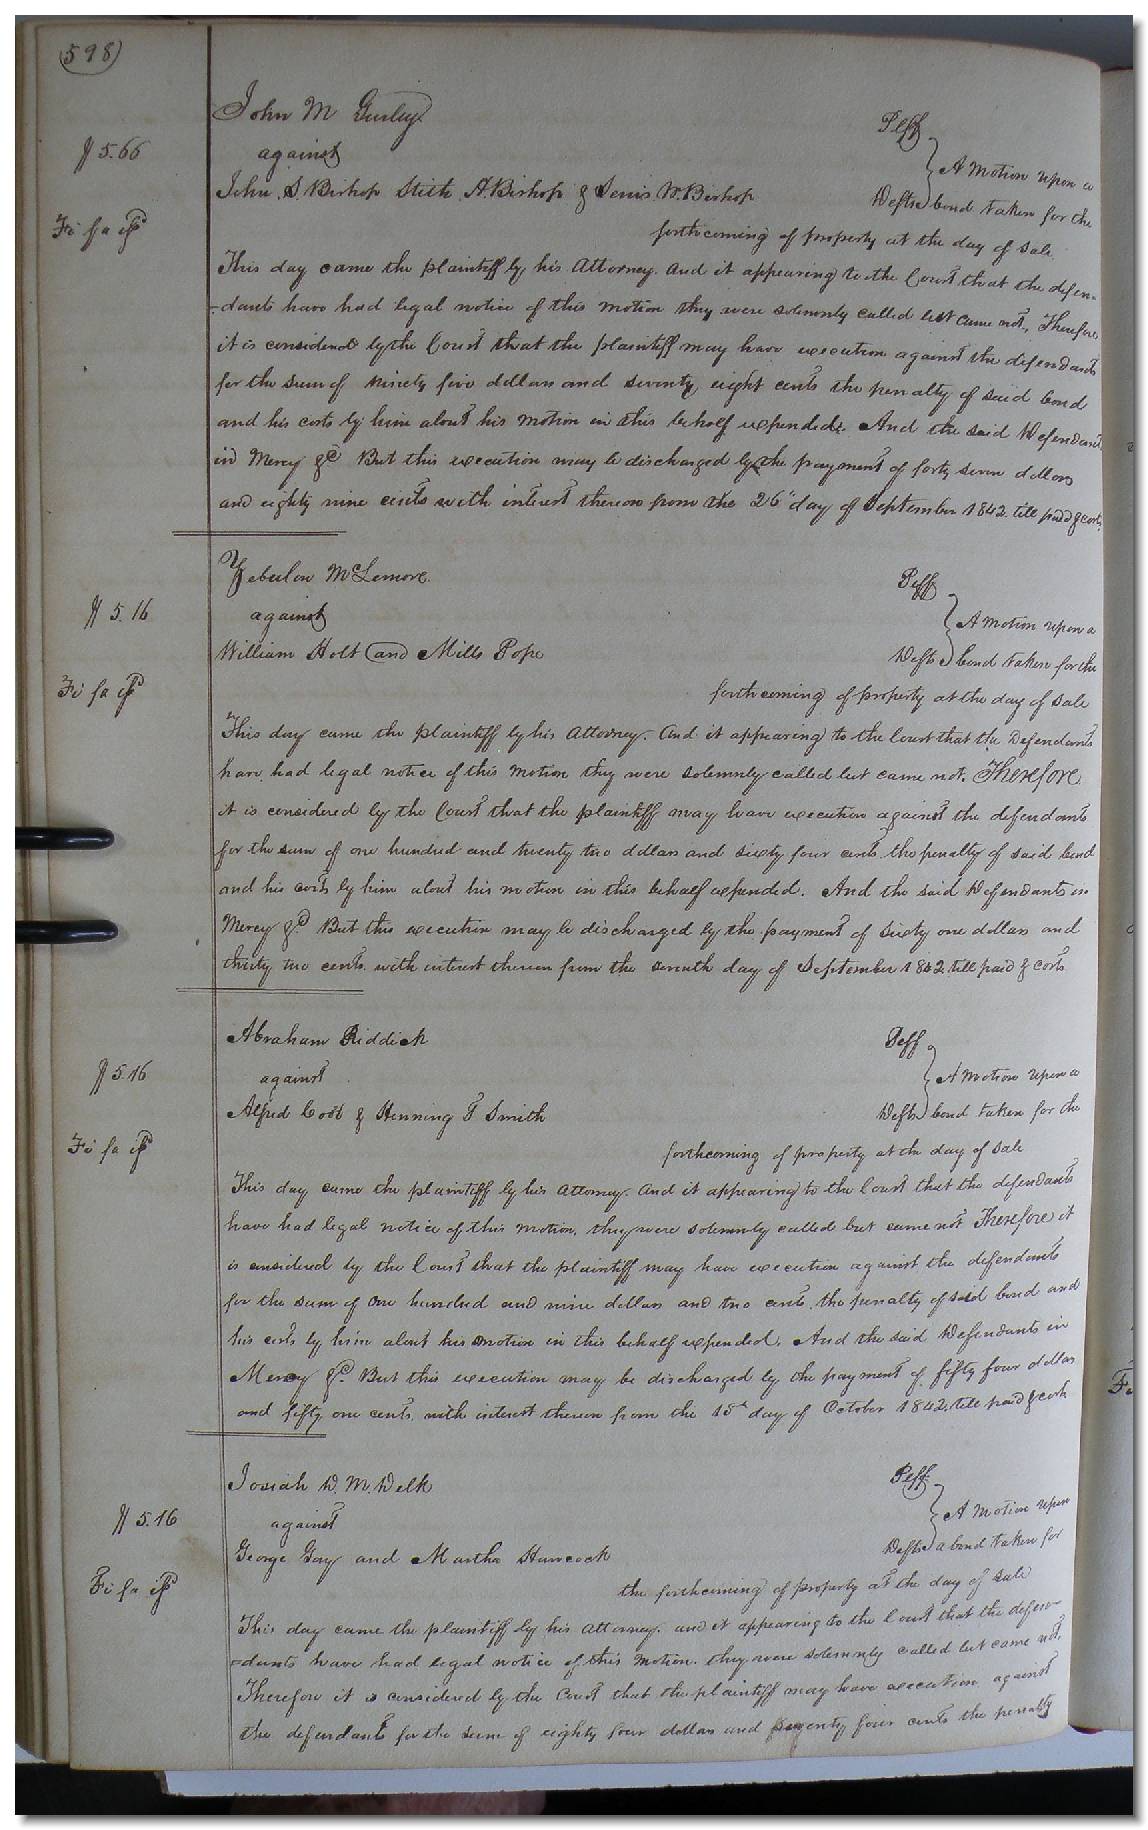 598
John M Gurley Plff
$5.66 against A Motion upon a
John S. Bishop Stith A. Bishop & Denis W. Bishop Defts bond taken for the
Fi fa isd forthcoming of property at the day of sale.
This day came the plaintiff by his Attorney. And it appearing to the Court that the defen-
-dants have had legal notice of this motion they were solemnly called but came not, Therefore
it is considered by the Court that the plaintiff may have execution against the defendants
for the sum of ninety five dollars and seventy eight cents the penalty of said bond
and his costs by him about his motion in this behalf expended. And the said Defendants
in Mercy &c But this execution may be discharged by the payment of forty seven dollars
and eighty nine cents with interest thereon from the 26" day of September 1842 till paid & costs.
Zebulon McLemore. Plff
$5.16 against A Motion upon a
William Holt and Mills Pope Defts bond taken for the
Fi fa isd forthcoming of property at the day of sale
This day came the plaintiff by his Attorney. And it appearing to the Court that the Defendants
have had legal notice of this motion they were solemnly called but came not. Therefore
it is considered by the Court that the plaintiff may have execution against the defendants
for the sum of one hundred and twenty two dollars and sixty four cents, the penalty of said bond
and his costs by him about his motion in this behalf expended. And the said Defendants in
Mercy &c But this execution may be discharged by the payment of sixty one dollars and
thirty two cents with interest thereon from the seventh day of September 1842 till paid & costs
Abraham Riddick Plff
$5.16 against A Motion upon a
Alfred Cobb & Henning T Smith Defts bond taken for the
Fi fa isd forthcoming of property at the day of sale
This day came the plaintiff by his Attorney. And it appearing to the Court that the defendants
have had legal notice of this motion, they were solemnly called but came not Therefore it
is considered by the Court that the plaintiff may have execution against the defendants
for the sum of one hundred and nine dollars and two cents, the penalty of said bond and
his costs by him about his motion in this behalf expended. And the said Defendants in
Mercy &c. But this execution may be discharged by the payment of fifty four dollars
and fifty one cents with interest thereon from the 15th day of October 1842, till paid & costs
Josiah D. M. Delk Plff
$5.16 against A Motion upon
George Gay and Martha Hancock Defts a bond taken for
Fi fa isd the forthcoming of property at the day of sale
This day came the plaintiff by his Attorney. and it appearing to the Court that the defen-
-dants have had legal notice of this motion. they were solemnly called but came not,
Therefore it is considered by the Court that the plaintiff may have execution against
the defendants for the sum of eighty four dollars and seventy four cents the penalty